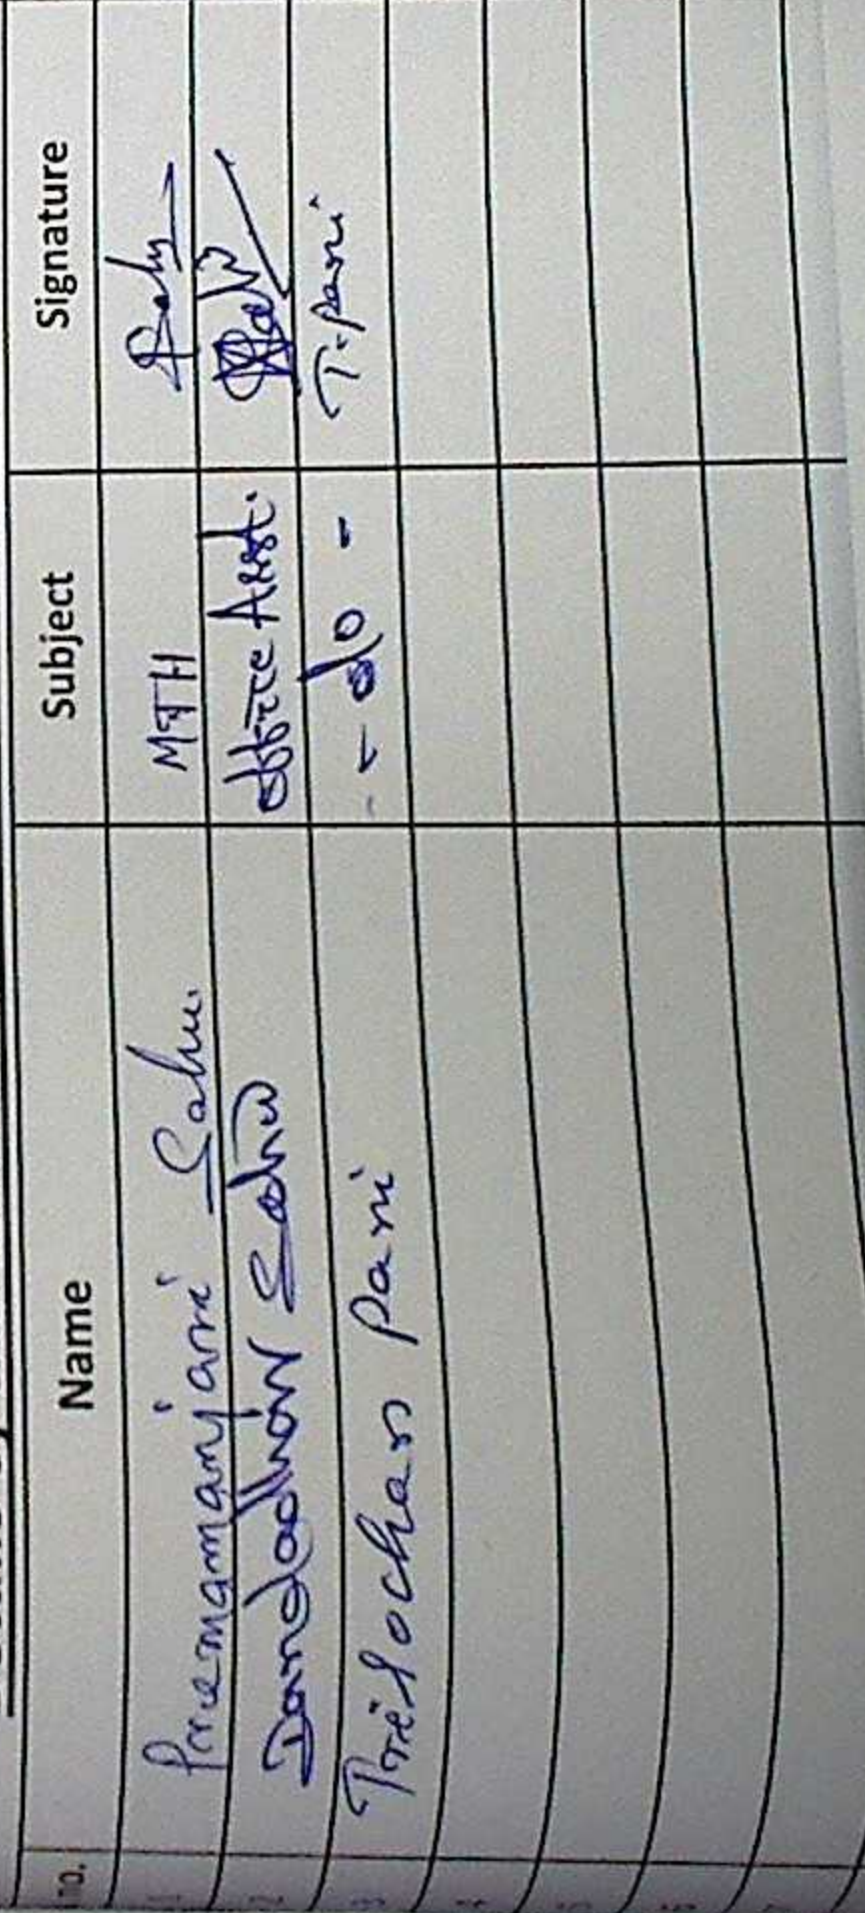 no. Name Subject Signature
1 Premamanjari Sahu. MTH
2 Dandadhar Sahu Office Asst.
3 Trilochan pani - do - T. pani
4
5
6
7